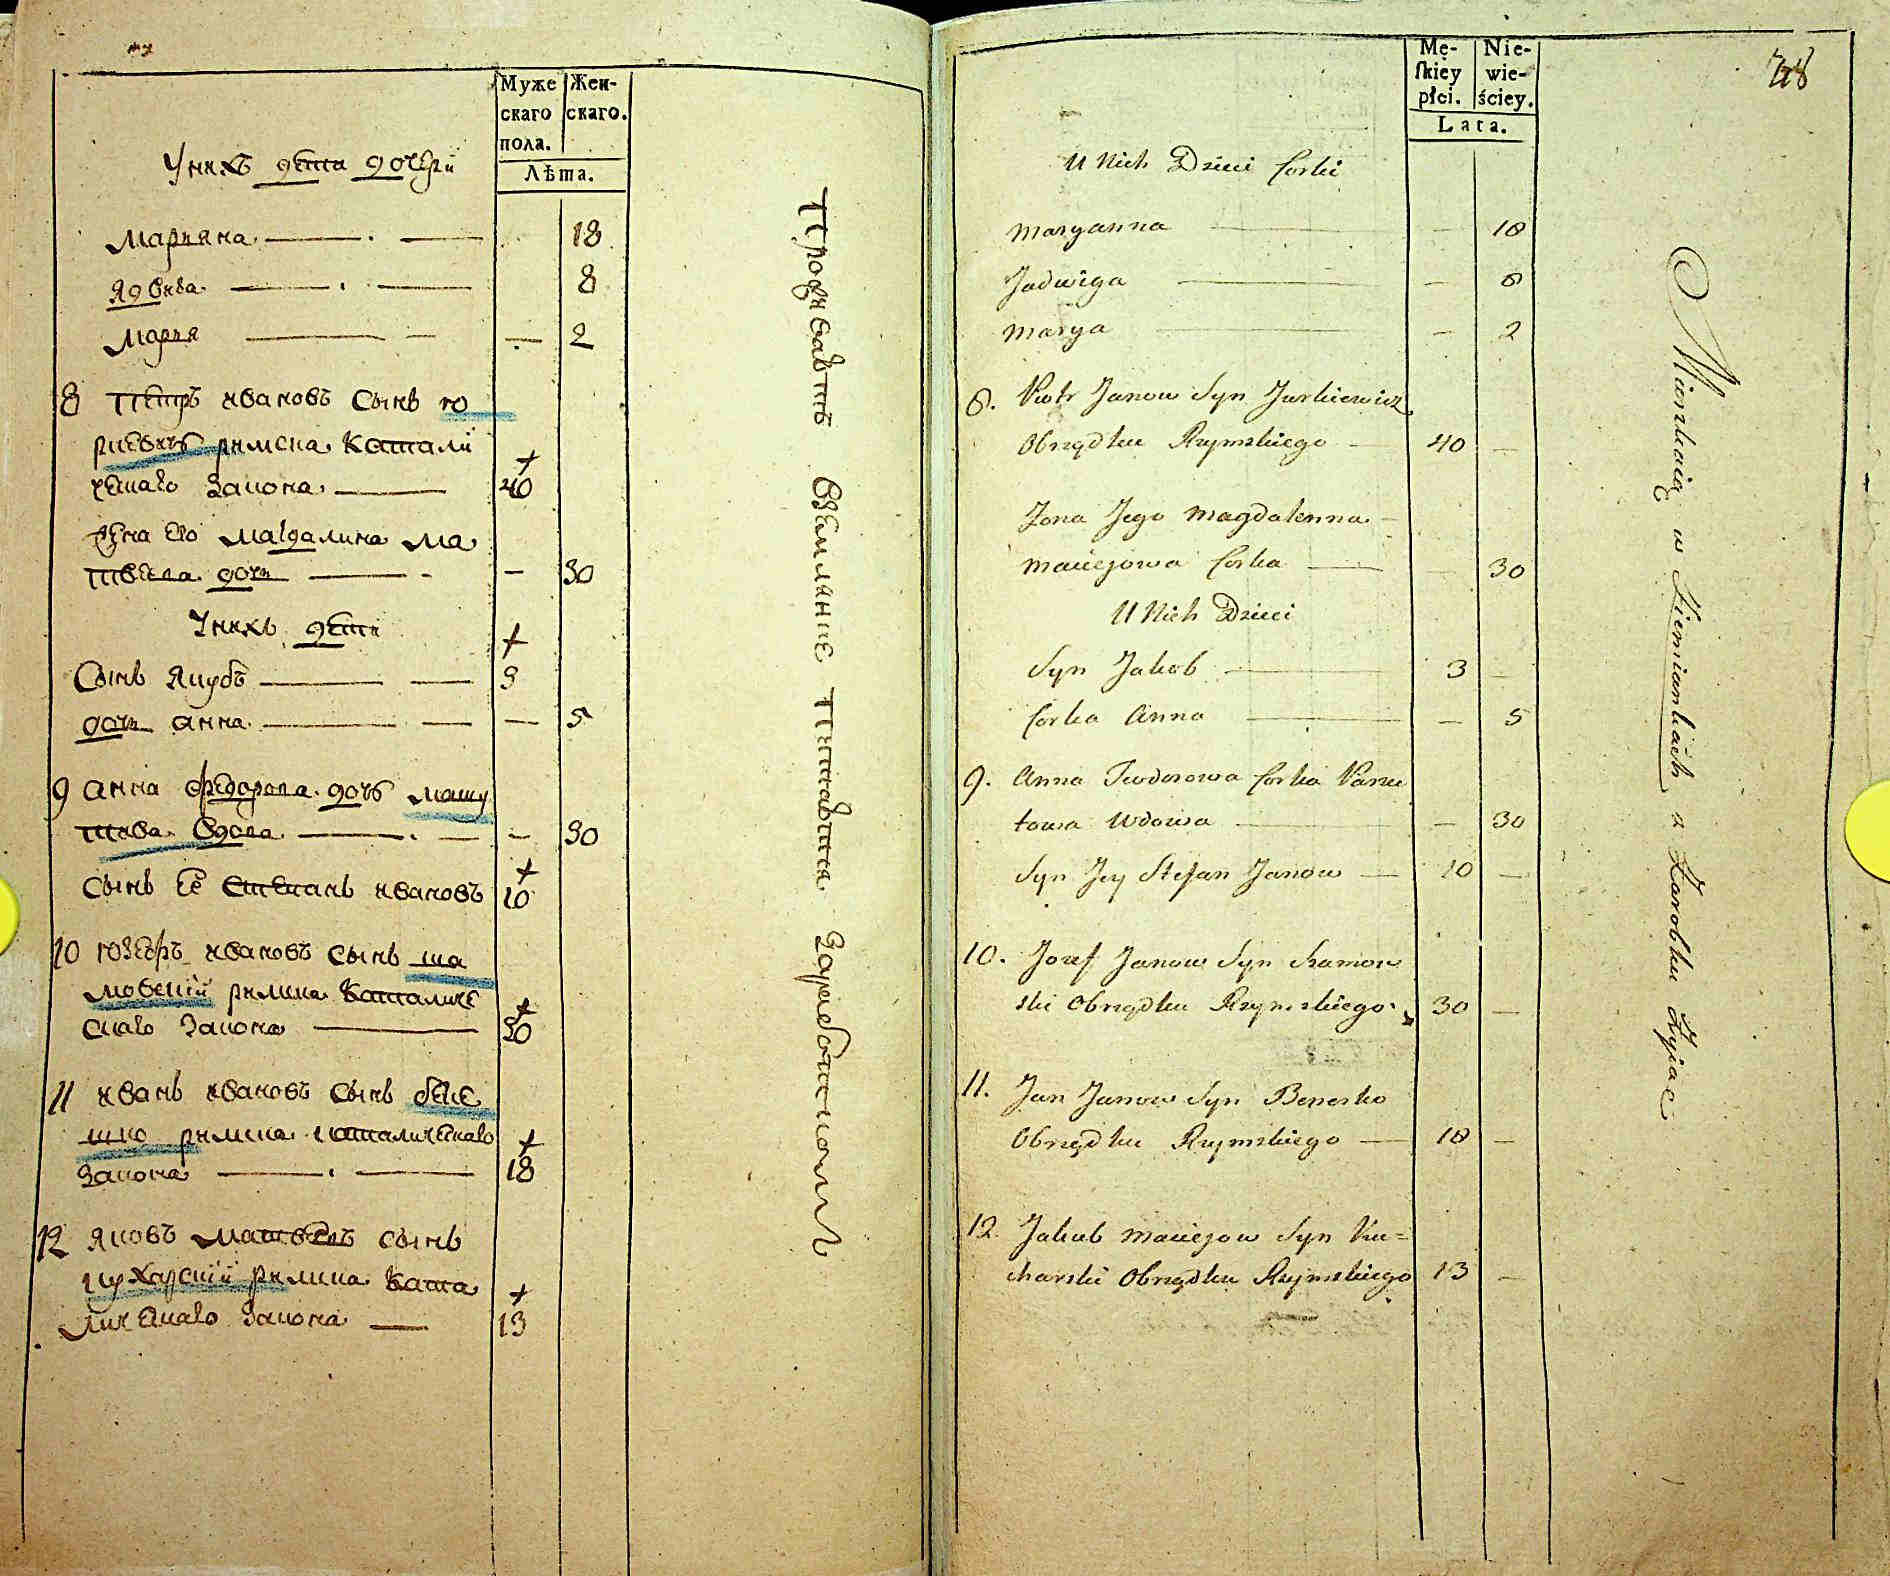 Муже
скаго
пола.
Жен-
скаго.
Лѣта.
У нихъ дети дочери
Марьяна 18
Ядвига 8
Марья 2
8 Петръ Ивановъ сынъ Ю
ркевичъ римска Катали
ческаго Закона 40
Жена его Магдалина Ма
твеева дочь 30
У нихъ дети
Сынъ Якубъ 3
дочь Анна 5
9 Анна Федорова дочь
вдова 30
Сынъ её Степанъ Ивановъ 10
10 Юзефъ Ивановъ сынъ Ша
мовский римска Каталиче
скаго Закона 30
11 Иванъ Ивановъ сынъ Бене
шко римска каталическаго
Закона 18
12 Яковъ Матвеевъ сынъ
Кухарский римска Ката
лическаго Закона 13
48
Mę-
ſkiey
płci.
Nie-
wie-
ściey.
Lata.
U Nich Dzieci Corki
Maryanna 18
Jadwiga 8
Marya 2
8. Piotr Janow Syn Jurkiewicz
Obrządku Rzymskiego 40
Zona Jego Magdalenna
Maciejowa Corka 30
U Nich Dzieci
Syn Jakob 3
Corka Anna 5
9. Anna Twdorowa Corka
towa Wdowa 30
Syn Jey Stefan Janow 10
10. Jozef Janow Syn Szamow
ski Obrządku Rzymskiego 30
11. Jan Janow Syn Benesko
Obrządku Rzymskiego 18
12 Jakub Maciejow Syn Ku=
charski Obrządku Rzymskiego 13
Mieszkaią w Ziemiankach a Zarobku Zyiąc